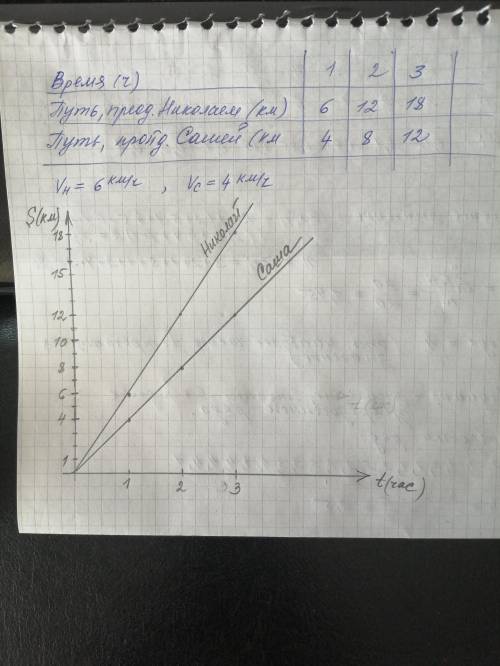 Время (ч) 1 2 3
Путь, пройд. Николаем (км) 6 12 18
Путь, пройд. Сашей (км 4 8 12
Vн = 6 км/ч , Vс = 4 км/ч
S(км)
18
15
12
10
8
6
4
1
Николай
Саша
1 2 3 t(час)